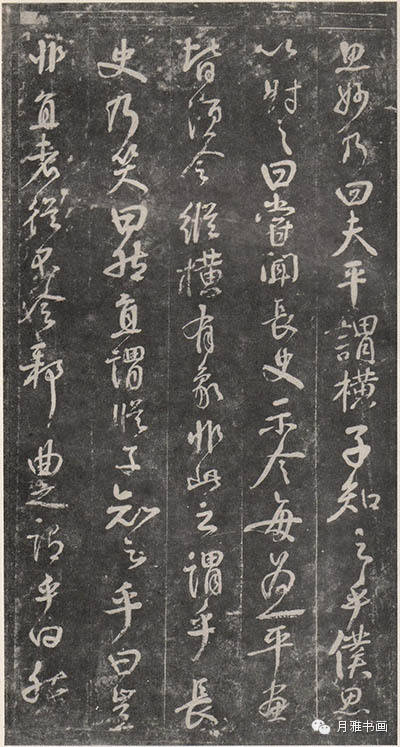 思妙乃曰夫平謂橫子知之乎僕思
以對之曰嘗聞長史示令每為一平畫
皆須令縱橫有象非此之謂乎長
史乃笑曰然直謂縱子知之乎曰豈
非直者從不令邪曲之謂乎曰然
月雅书画